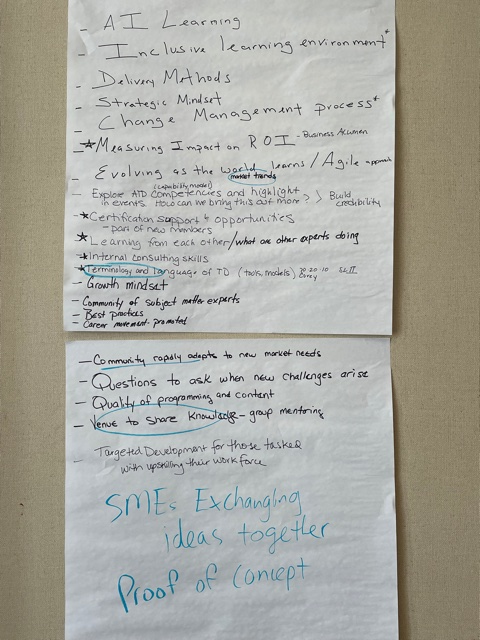 - AI Learning
- Inclusive learning environment*
- Delivery Methods
- Strategic Mindset
- Change Management process*
- ★Measuring Impact on ROI - Business Acumen
- Evolving as the world learns/Agile approach
market trends
(capability model)
- Explore ATD competencies and highlight
in events. How can we bring this out more? > Build credibility
- ★Certification support & opportunities
- part of new members
- ★Learning from each other/what are other experts doing
- ★Internal consulting skills
- ★Terminology and language of TD (tools, models) 70·20·10 SLII
- Growth mindset
- Community of subject matter experts
- Best practices
- Career movement - promoted
- Community rapidly adapts to new market needs
- Questions to ask when new challenges arise
- Quality of programming and content
- Venue to share knowledge - group mentoring
- Targeted Development for those tasked
with upskilling their workforce
SMEs Exchanging
ideas together
Proof of Concept